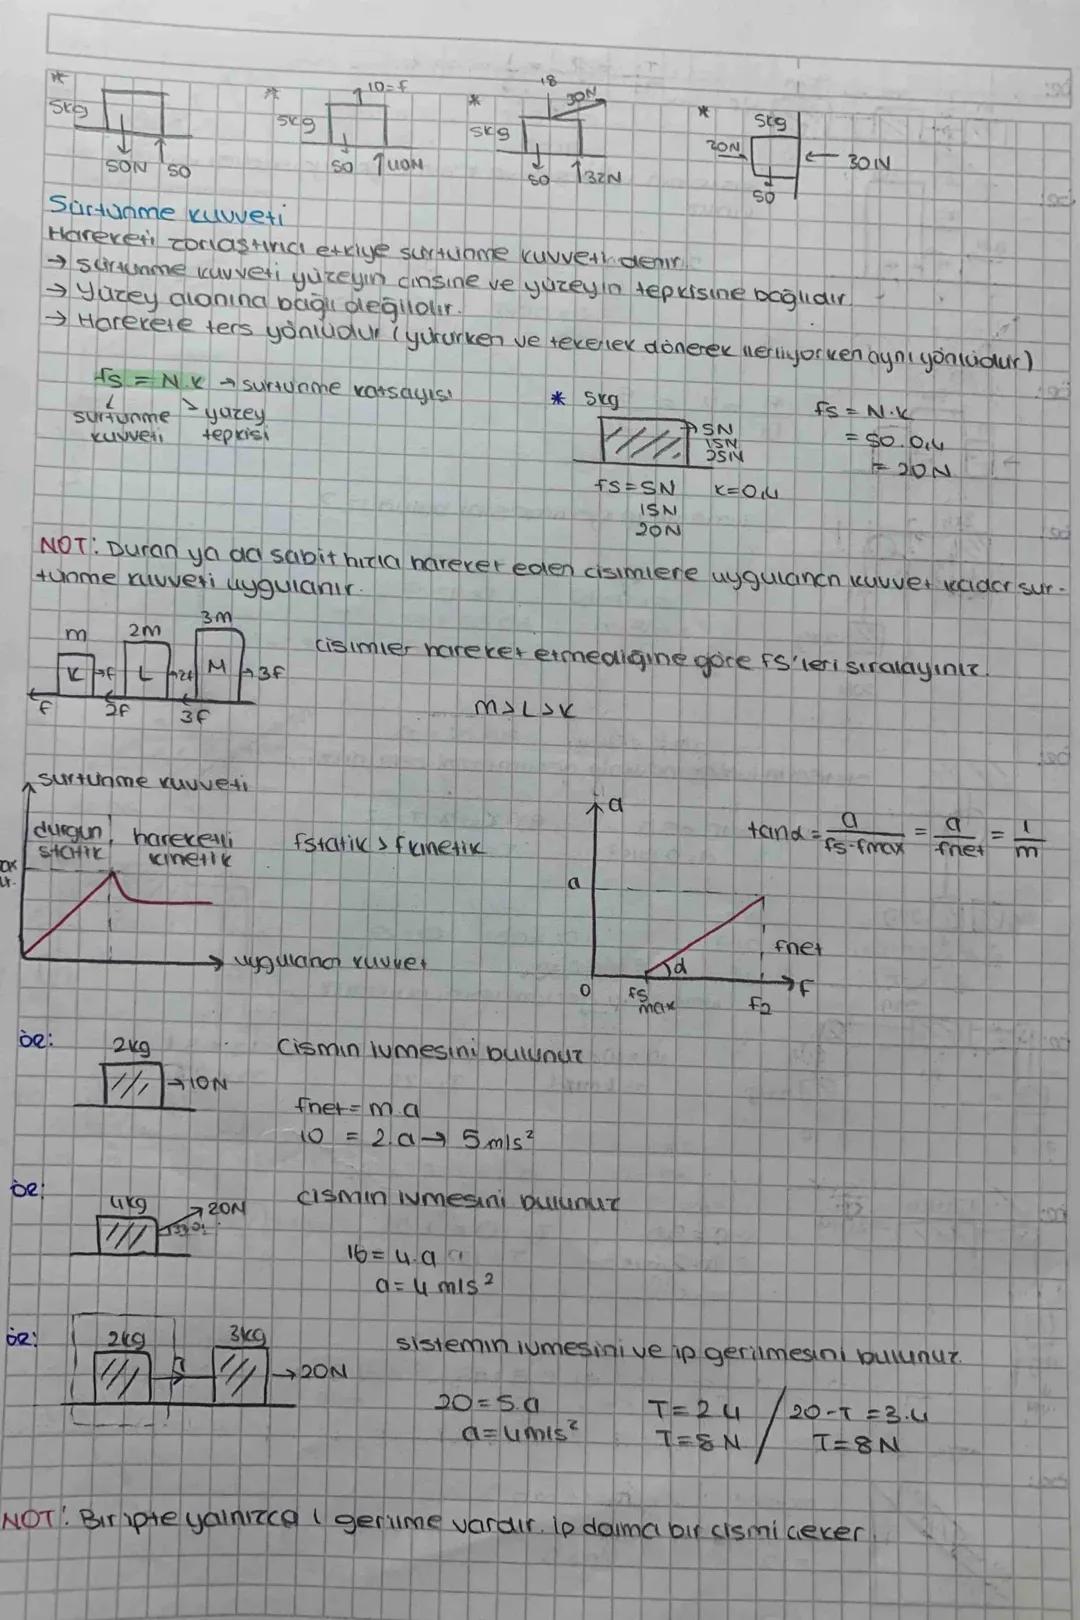 * * * *
5kg 5kg 10=f 5kg 18 30N 5kg
20N 30N
50N 50 50 40N 50 32N 50
Sürtünme kuvveti
Hareketi zorlaştırıcı etkiye sürtünme kuvveti denir.
→ Sürtünme kuvveti yüzeyin cinsine ve yüzeyin tepkisine bağlıdır.
→ Yüzey alanına bağlı değildir.
→ Harekete ters yönlüdür (yürürken ve tekerlek dönerek ilerliyorken aynı yönlüdür)
fs = N.k → sürtünme katsayısı
sürtünme kuvveti
yüzey tepkisi
* 5kg
5N
15N
25N
fs=5N k=0,4
15N
20N
fs = N.k
= 50.0,4
= 20N
NOT: Duran ya da sabit hızla hareket eden cisimlere uygulanan kuvvet kadar sür-
tünme kuvveti uygulanır.
m 2m 3m
K f L 2f M 3f
f 2f 3f
Cisimler hareket etmediğine göre fs'leri sıralayınız.
M>L>K
sürtünme kuvveti
durgun hareketli
statik kinetik
fstatik > fkinetik
uygulanan kuvvet
a
a
0 fs max f2 f
α
fnet
tanα = a/fs-fmax = a/fnet = 1/m
ör: 2kg Cismin ivmesini bulunuz
10N
fnet = m.a
10 = 2.a → 5 m/s²
ör: 4kg 20N Cismin ivmesini bulunuz
16 = 4.a
a = 4 m/s²
ör: 2kg 3kg sistemin ivmesini ve ip gerilmesini bulunuz.
20N
20 = 5.a T = 2.4 / 20-T = 3.4
a = 4m/s² T = 8 N / T = 8 N
NOT: Bir ipte yalnızca 1 gerilme vardır. ip daima bir cismi çeker.